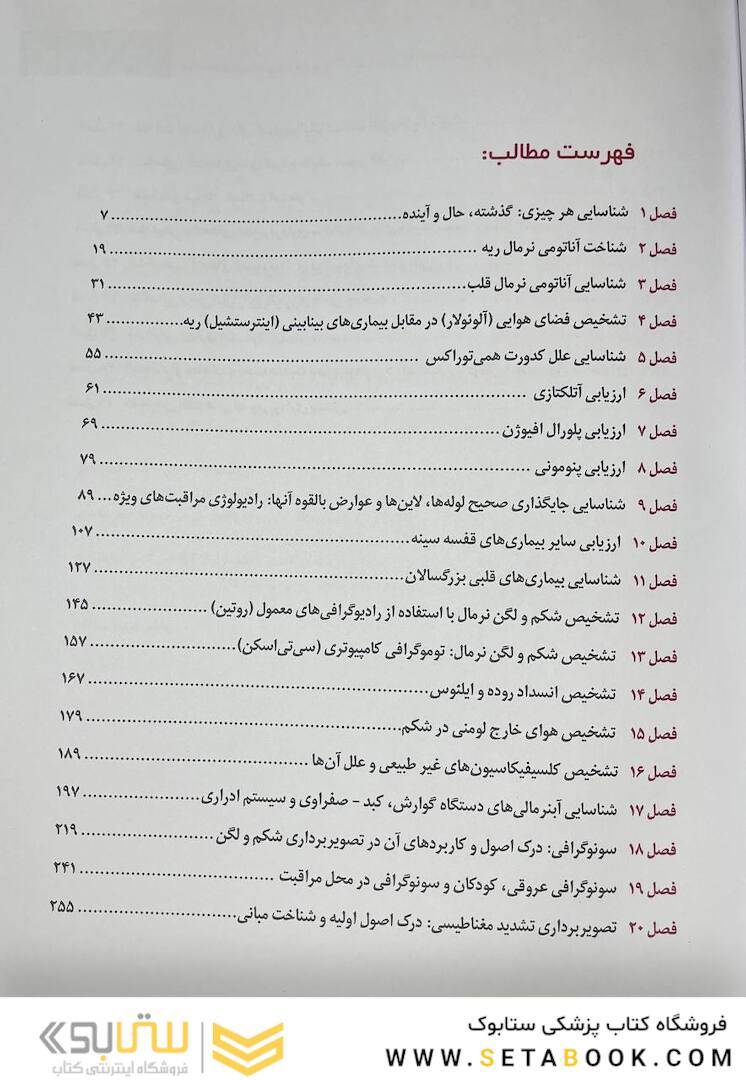 فهرست مطالب:
فصل ۱ شناسایی هر چیزی: گذشته، حال و آینده ۷
فصل ۲ شناخت آناتومی نرمال ریه ۱۹
فصل ۳ شناسایی آناتومی نرمال قلب ۳۱
فصل ۴ تشخیص فضای هوایی (آلوئولار) در مقابل بیماری‌های بینابینی (اینترستشیل) ریه ۴۳
فصل ۵ شناسایی علل کدورت همی‌توراکس ۵۵
فصل ۶ ارزیابی آتلکتازی ۶۱
فصل ۷ ارزیابی پلورال افیوژن ۶۹
فصل ۸ ارزیابی پنومونی ۷۹
فصل ۹ شناسایی جایگذاری صحیح لوله‌ها، لاین‌ها و عوارض بالقوه آنها: رادیولوژی مراقبت‌های ویژه ۸۹
فصل ۱۰ ارزیابی سایر بیماری‌های قفسه سینه ۱۰۷
فصل ۱۱ شناسایی بیماری‌های قلبی بزرگسالان ۱۲۷
فصل ۱۲ تشخیص شکم و لگن نرمال با استفاده از رادیوگرافی‌های معمول (روتین) ۱۴۵
فصل ۱۳ تشخیص شکم و لگن نرمال: توموگرافی کامپیوتری (سی‌تی‌اسکن) ۱۵۷
فصل ۱۴ تشخیص انسداد روده و ایلئوس ۱۶۷
فصل ۱۵ تشخیص هوای خارج لومنی در شکم ۱۷۹
فصل ۱۶ تشخیص کلسیفیکاسیون‌های غیر طبیعی و علل آن‌ها ۱۸۹
فصل ۱۷ شناسایی آبنرمالی‌های دستگاه گوارش، کبد - صفراوی و سیستم ادراری ۱۹۷
فصل ۱۸ سونوگرافی: درک اصول و کاربردهای آن در تصویربرداری شکم و لگن ۲۱۹
فصل ۱۹ سونوگرافی عروقی، کودکان و سونوگرافی در محل مراقبت ۲۴۱
فصل ۲۰ تصویربرداری تشدید مغناطیسی: درک اصول اولیه و شناخت مبانی ۲۵۵
فروشگاه کتاب پزشکی ستابوک
WWW.SETABOOK.COM
ستابوک
فروشگاه اینترنتی کتاب